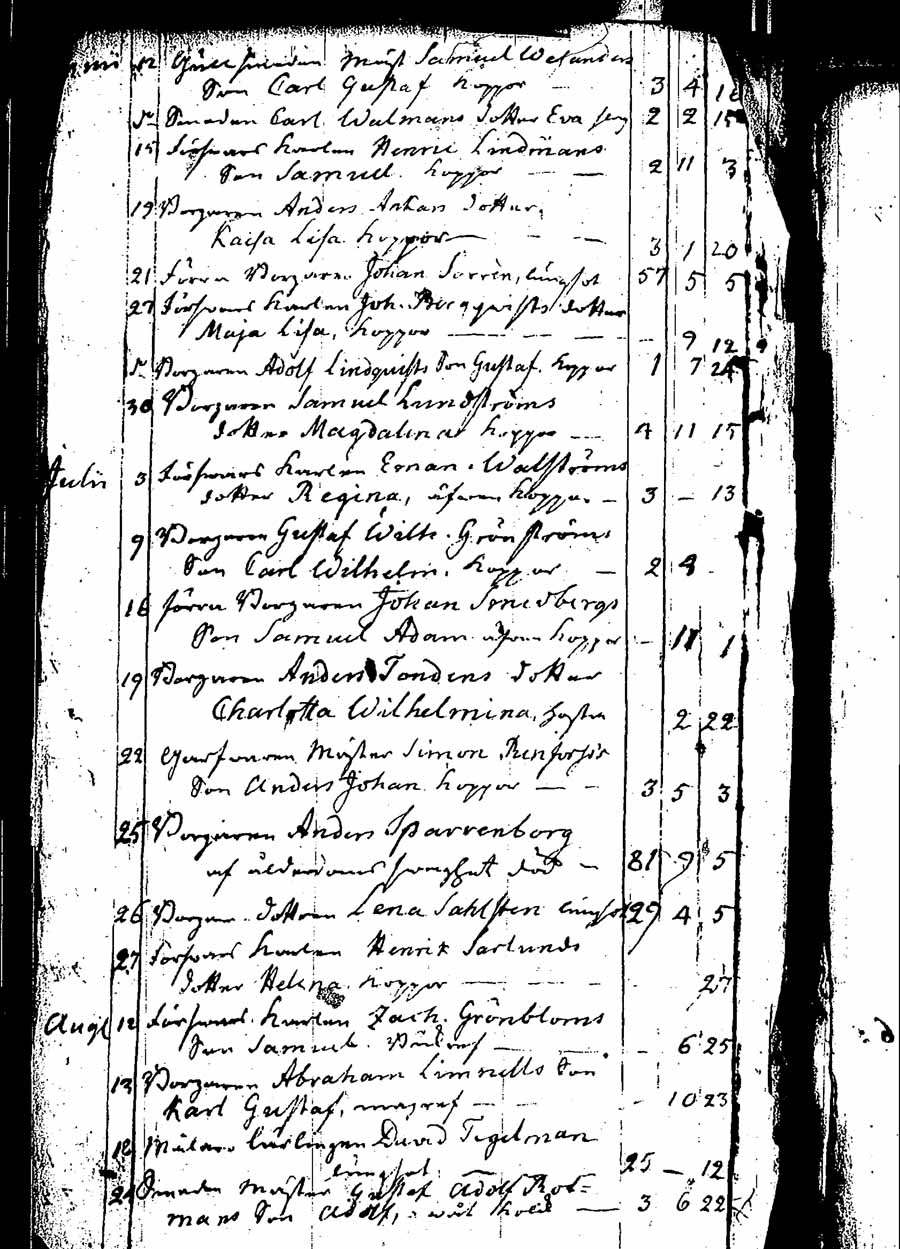 12 Gull smeden Mäst Samuel Welanders
Son Carl Gustaf koppor — 3 4 16
Dn Smeden Carl Walmans dotter Eva 2 2 15
15 Försvars Karlen Henric Lindmans
Son Samuel. koppor — — 2 11 3
19 Borgaren Anders Ankars dotter,
Kaisa Lisa koppor — — — 3 1 20
21 Förra Borgaren Johan Sorrén, lungsot 57 5 5
27 Försvars Karlen Joh. Bergqvists dotter
Maja Lisa, koppor — — — — 9 12
Dn Borgaren Adolf Lindquists Son Gustaf. koppor 1 7 24
30 Borgaren Samuel Lundströms
dotter Magdalena koppor — 4 11 15
Julii 3 Försvars Karlen Ernan. Walströms
dotter Regina, äfven koppor — 3 — 13
9 Borgaren Gustaf Wilh. Grönströms
Son Carl Wilhelm. koppor — 2 8
16 Förra Borgaren Johan Smedbergs
Son Samuel Adam äfven koppor — 11 1
19 Borgaren Anders Tondens dotter
Charlotta Wilhelmina, hosta 2 22
22 Garfvaren Mäster Simon Renfors's
Son Anders Johan koppor — — 3 5 3
25 Borgaren Anders Sparrenborg
af ålderdoms svaghet död — 81 9 5
26 Borgare dottren Lena Sahlsten lungsot 29 4 5
27 Försvars Karlen Henrik Sarlunds
dotter Helena koppor — — — 27
Augt 12 Försvars Karlen Zach. Grönbloms
Son Samuel. — — 6 25
13 Borgaren Abraham Limnells Son
Karl Gustaf, — — — 10 23
18 Målare lärlingen David Tegelman
lungsot 25 — 12
24 Smeden Mäster Gustaf Adolf Rot=
mans Son Adolf, — 3 6 22